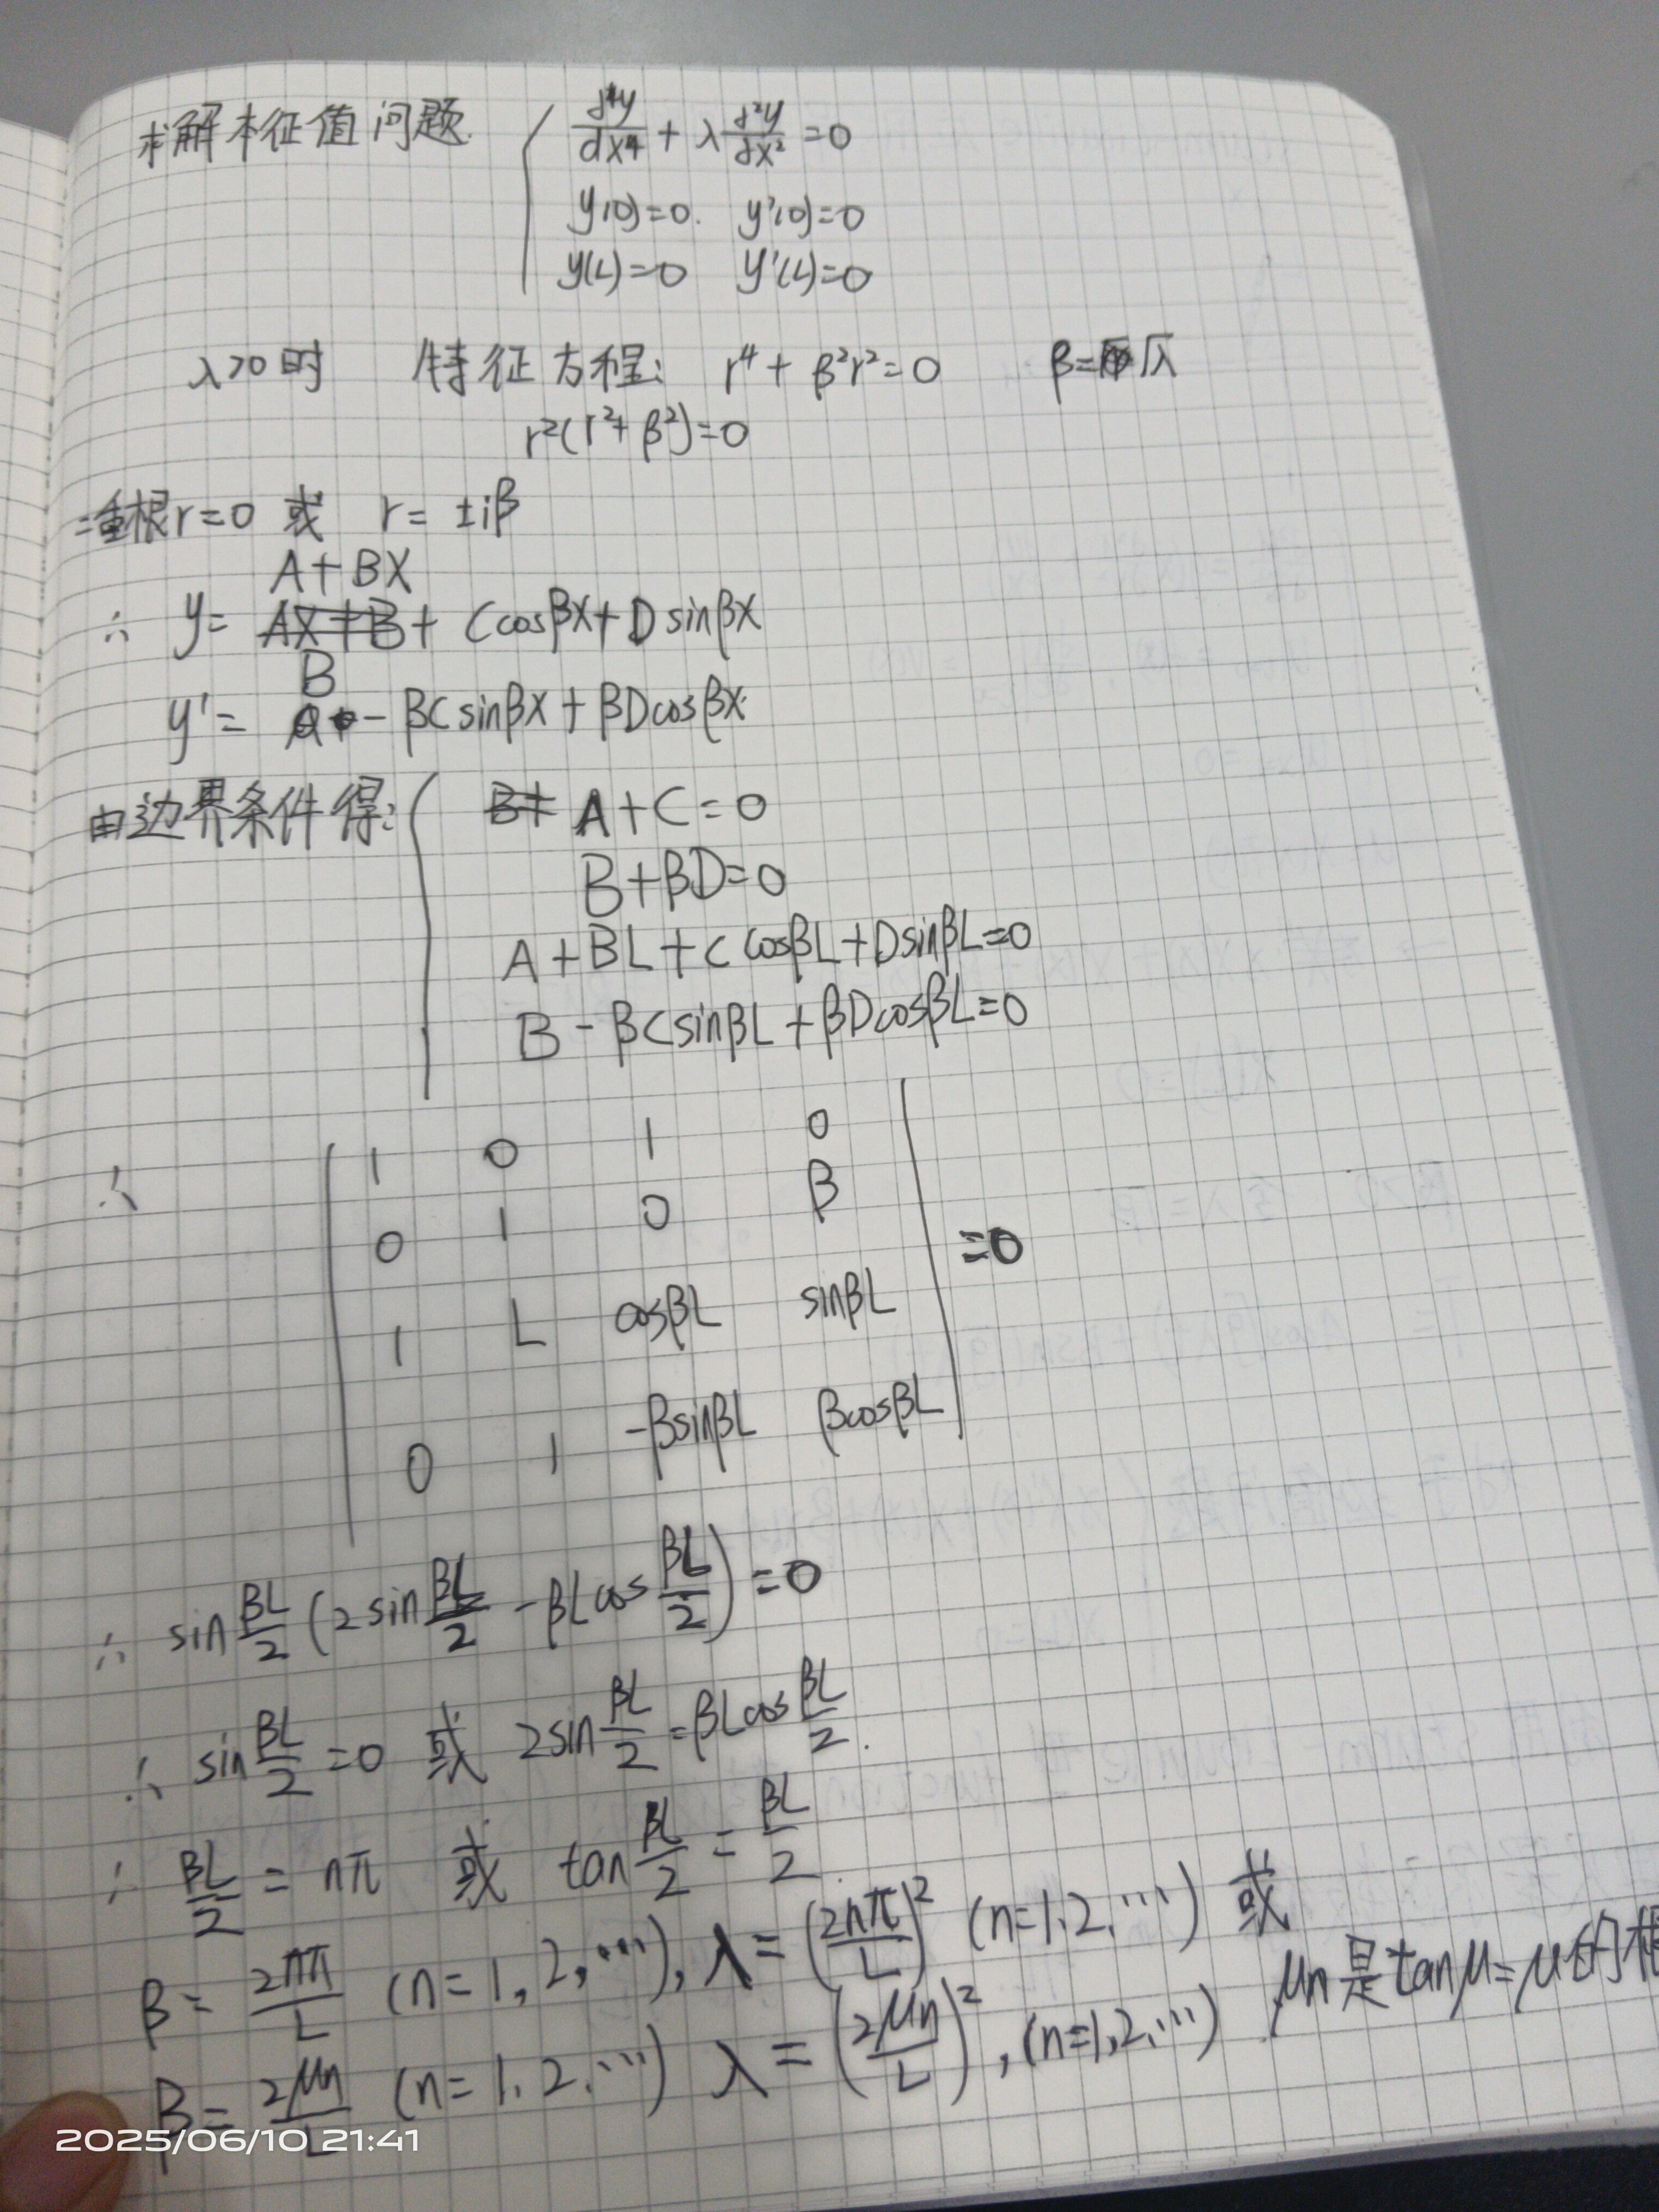 求解本征值问题 { d⁴y/dx⁴ + λ d²y/dx² = 0
y(0)=0. y'(0)=0
y(L)=0 y'(L)=0
λ>0时 特征方程: r⁴ + β²r² = 0 β=√λ
r²(r²+β²)=0
二重根r=0 或 r= ±iβ
A+BX
∴ y= AX+B + Ccosβx + D sinβx
B
y' = - βC sinβx + βDcosβx
由边界条件得: { B+ A+C=0
B+βD=0
A+BL+C cosβL+DsinβL=0
B - βCsinβL + βDcosβL=0
∴ | 1 0 1 0 |
0 1 0 β
1 L cosβL sinβL =0
0 1 -βsinβL βcosβL
∴ sin βL/2 (2sin βL/2 - βLcos βL/2) = 0
∴ sin βL/2 = 0 或 2sin βL/2 = βLcos βL/2.
∴ βL/2 = nπ 或 tan βL/2 = βL/2.
β= 2nπ/L (n=1,2,…), λ = (2nπ/L)² (n=1.2.…) 或
β= 2μn/L (n=1.2.…) λ = (2μn/L)², (n=1,2,…) μn是tanμ=μ的根
2025/06/10 21:41